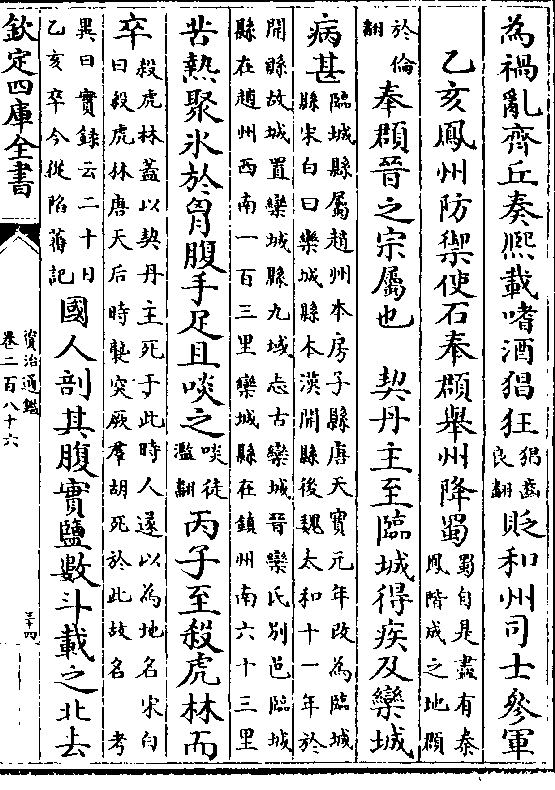 為禍亂齊丘奏熙載嗜酒猖狂猖齒良翻貶和州司士參軍
乙亥鳳州防禦使石奉頵舉州降蜀蜀自是盡有秦鳳階成之地頵
於倫翻奉頵晉之宗屬也 契丹主至臨城得疾及欒城
病甚臨城縣屬趙州本房子縣唐天寶元年改為臨城縣宋白曰欒城縣本漢開縣後魏太和十一年於
開縣故城置欒城縣九域志古欒城晉欒氏別邑臨城縣在趙州西南一百三里欒城縣在鎮州南六十三里
苦熱聚氷於胷腹手足且啖之啖徒濫翻丙子至殺虎林而
卒殺虎林蓋以契丹主死于此時人遂以為地名宋白曰殺虎林唐天后時襲突厥羣胡死於此故名 考
異曰實録云二十日乙亥卒今從陷蕃記國人剖其腹實鹽數斗載之北去
欽定四庫全書
資治通鑑
卷二百八十六
三十四